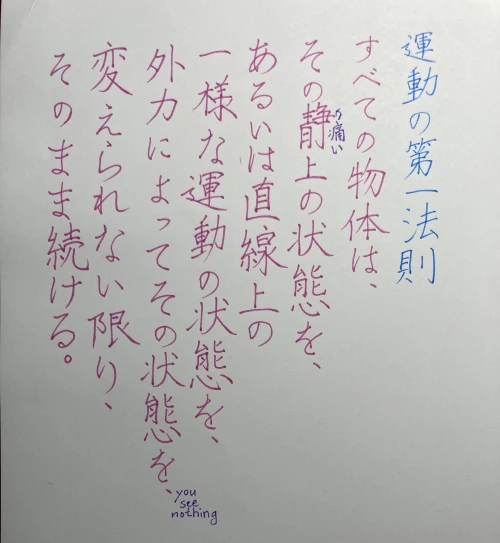 運動の第一法則
すべての物体は、
痛い
その静上の状態を、
あるいは直線上の
一様な運動の状態を、
外力によってその状態を、
you
see
nothing
変えられない限り、
そのまま続ける。